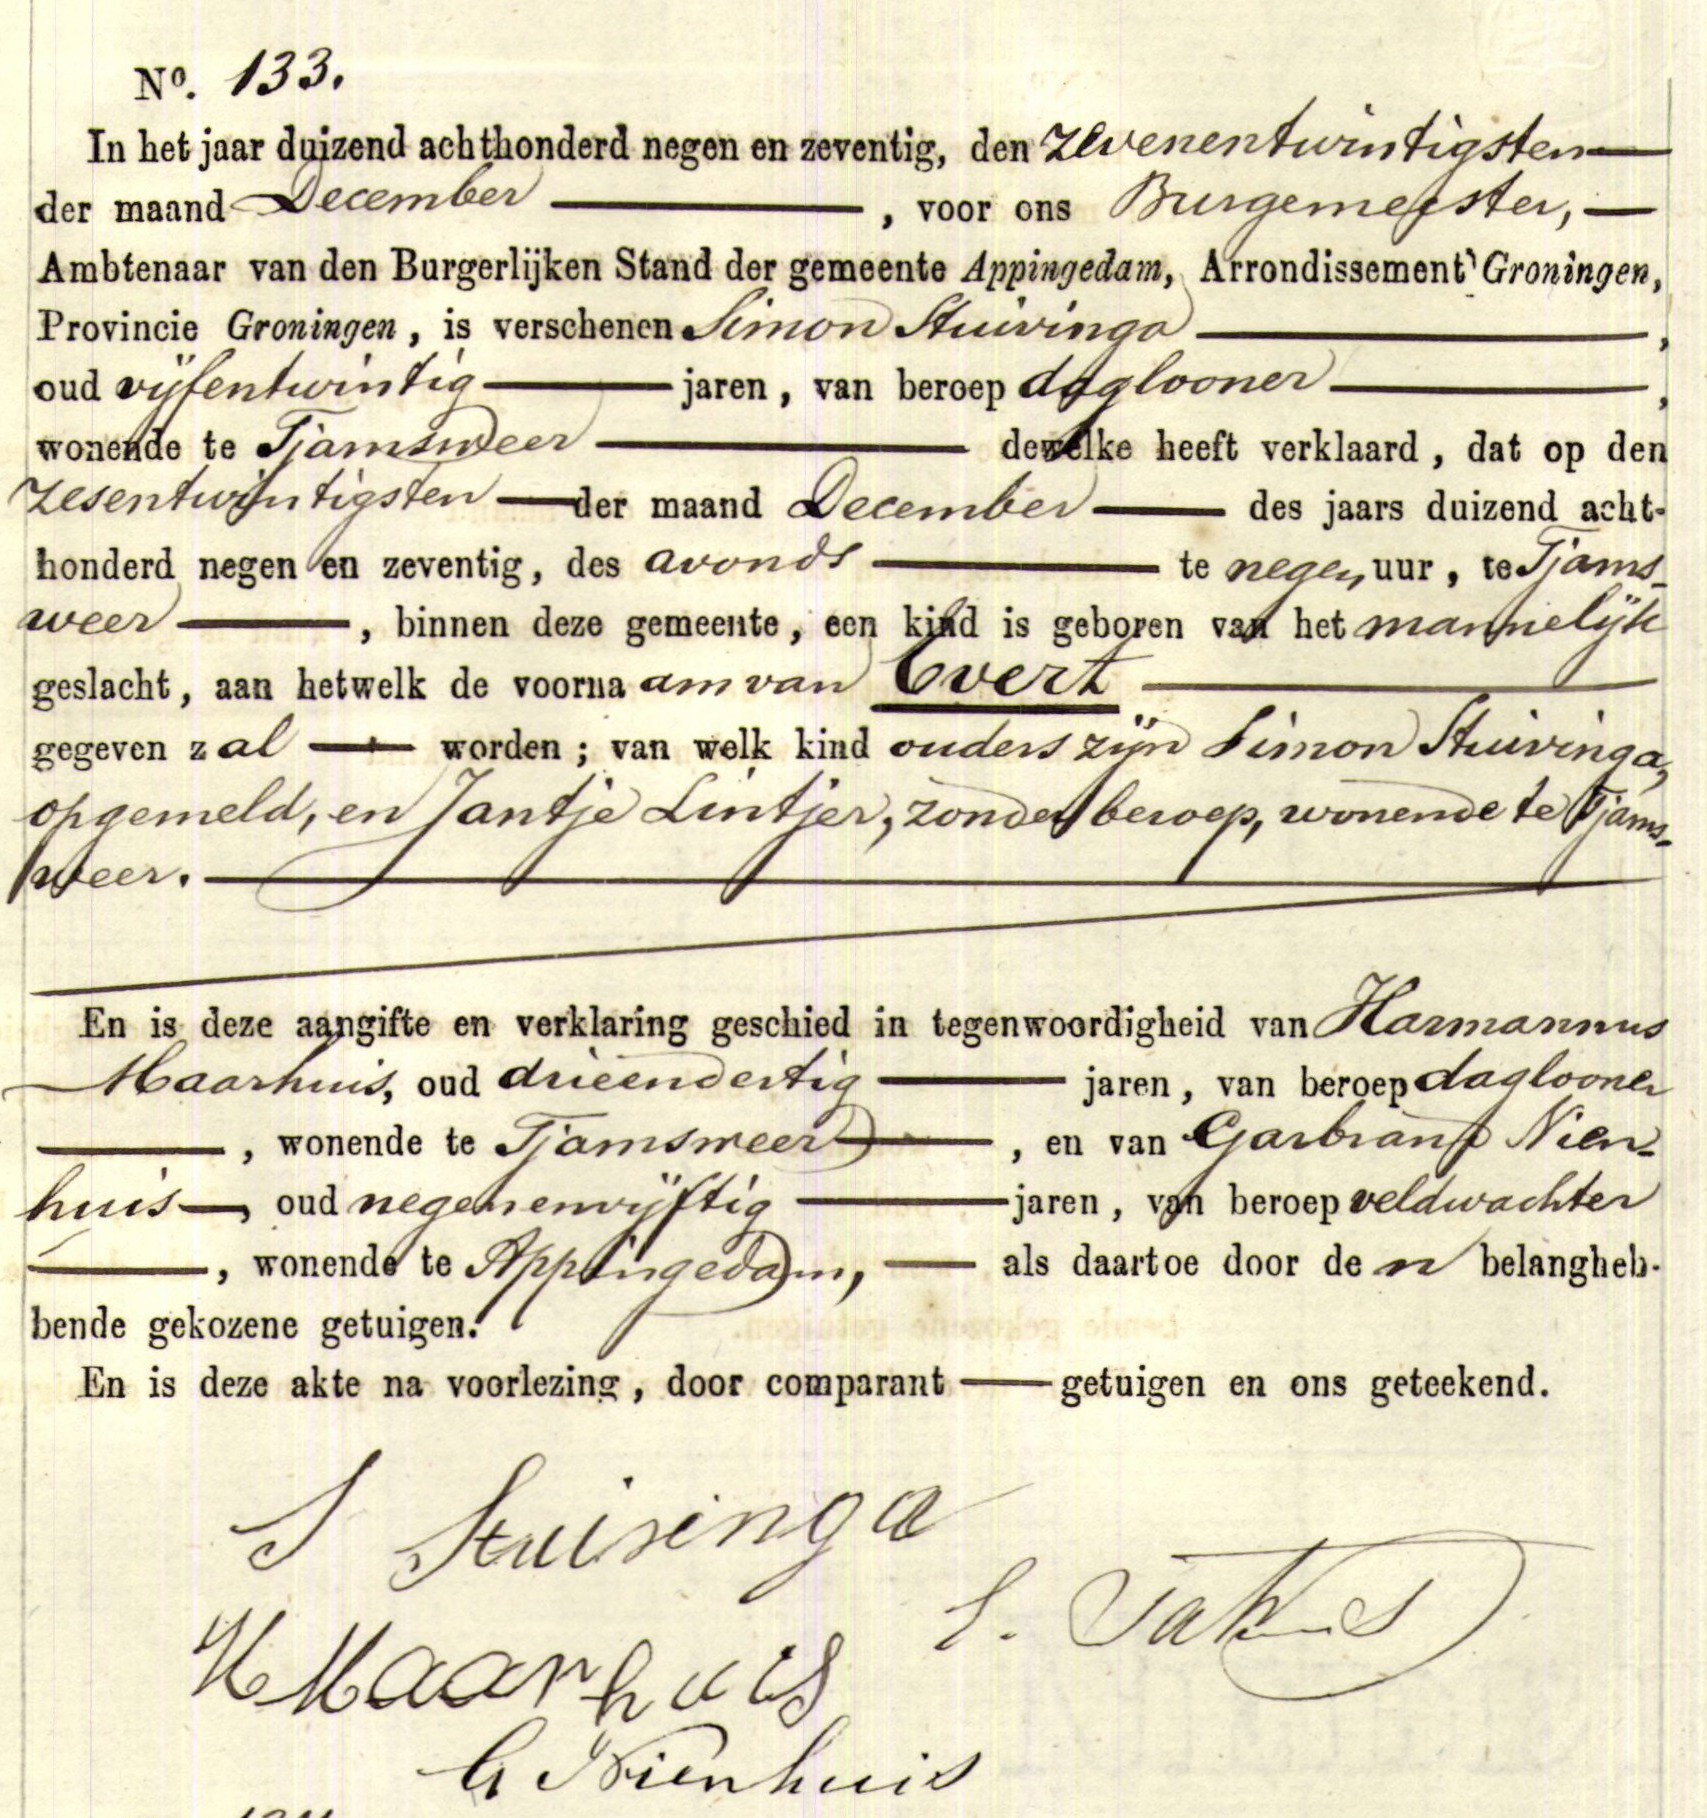 No. 133.
In het jaar duizend achthonderd negen en zeventig, den zevenentwintigsten
der maand December , voor ons Burgemeester,
Ambtenaar van den Burgerlijken Stand der gemeente Appingedam, Arrondissement Groningen,
Provincie Groningen, is verschenen Simon Stuivinga ,
oud vijfentwintig jaren, van beroep daglooner ,
wonende te Tjamsweer dewelke heeft verklaard, dat op den
zesentwintigsten der maand December des jaars duizend acht-
honderd negen en zeventig, des avonds te negen uur, te Tjams-
weer , binnen deze gemeente, een kind is geboren van het mannelijk
geslacht, aan hetwelk de voornaam van Evert
gegeven zal worden; van welk kind ouders zijn Simon Stuivinga,
opgemeld, en Jantje Lintjer, zonder beroep, wonende te Tjams-
weer.
En is deze aangifte en verklaring geschied in tegenwoordigheid van Harmannus
Maarhuis, oud drieendertig jaren, van beroep daglooner
, wonende te Tjamsweer , en van Garbrand Nien-
huis , oud negenenvijftig jaren, van beroep veldwachter
, wonende te Appingedam, als daartoe door de n belangheb-
bende gekozene getuigen.
En is deze akte na voorlezing, door comparant getuigen en ons geteekend.
S Stuivinga
H Maarhuis
G Nienhuis